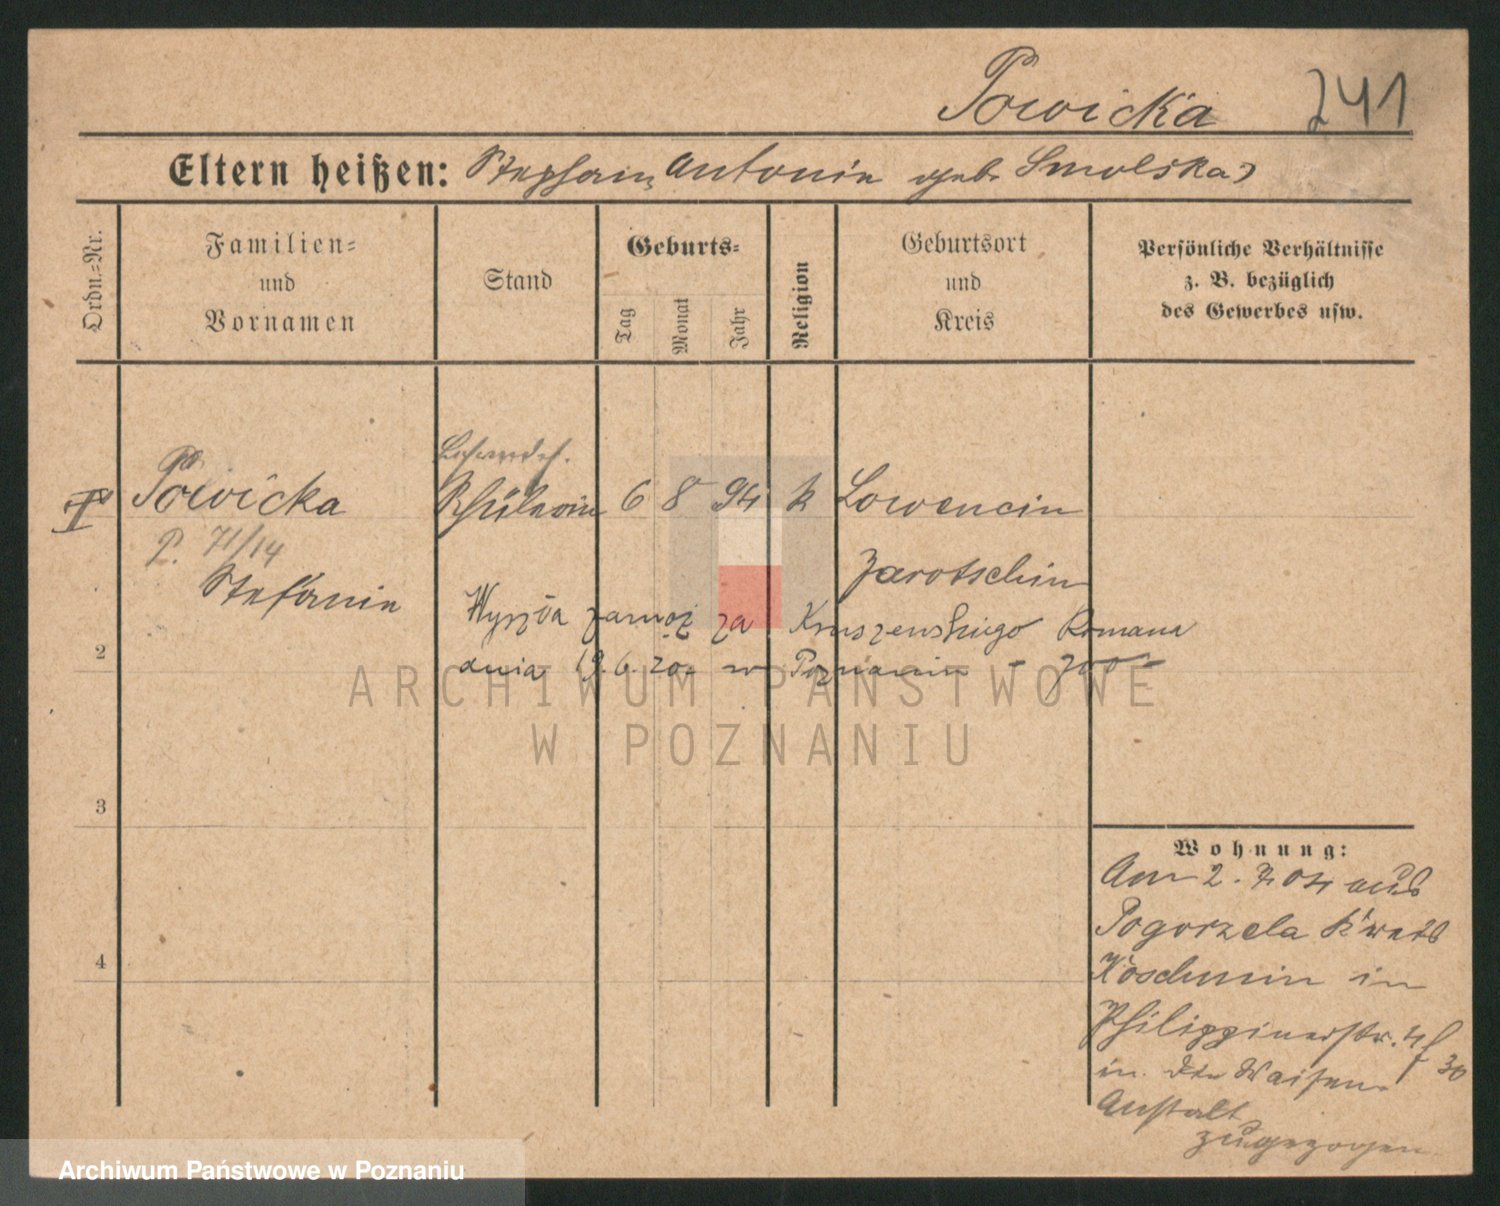 Powicka 241
Eltern heißen: Stephan, Antonie geb. Smolska)
Ordn.=Nr.
Familien=
und
Vornamen
Stand
Geburts=
Tag
Monat
Jahr
Religion
Geburtsort
und
Kreis
Persönliche Verhältnisse
z. B. bezüglich
des Gewerbes usw.
Powicka Schülerin 6 8 94 k Lowencin
P. 71/14
Stefanie
Jarotschin
Wyszła zamąż za Kruszenskiego Romana
2
dnia 19.6.20. w Poznaniu
3
Wohnung:
Am 2. 7. 04 aus
Pogorzela Kreis
4
Koschmin in
Philippinerstr. 4
30
in die Waisen
Anstalt
zugezogen
ARCHIWUM PAŃSTWOWE
W POZNANIU
Archiwum Państwowe w Poznaniu